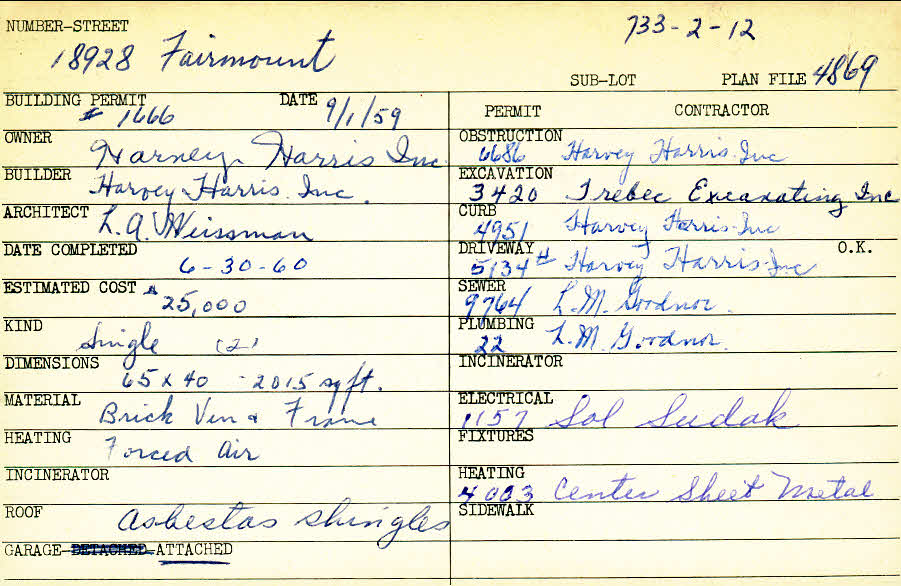 NUMBER-STREET 733-2-12
18928 Fairmount
SUB-LOT PLAN FILE 4869
BUILDING PERMIT # 1666 DATE 9/1/59
PERMIT CONTRACTOR
OWNER Harvey Harris Inc
OBSTRUCTION 6686 Harvey Harris Inc
BUILDER Harvey Harris Inc.
EXCAVATION 3420 Trebec Excavating Inc
ARCHITECT L.A. Weissman
CURB 4951 Harvey Harris Inc
DATE COMPLETED 6-30-60
DRIVEWAY 5134# Harvey Harris Inc O.K.
ESTIMATED COST $ 25,000
SEWER 9764 L.M. Goodnor.
KIND Single (2)
PLUMBING 22 L.M. Goodnor.
DIMENSIONS 65 x 40 - 2015 sq ft.
INCINERATOR
MATERIAL Brick Ven & Frame
ELECTRICAL 1157 Sol Sudak
HEATING Forced Air
FIXTURES
INCINERATOR
HEATING 4003 Center Sheet Metal
ROOF asbestas shingles
SIDEWALK
GARAGE-DETACHED-ATTACHED